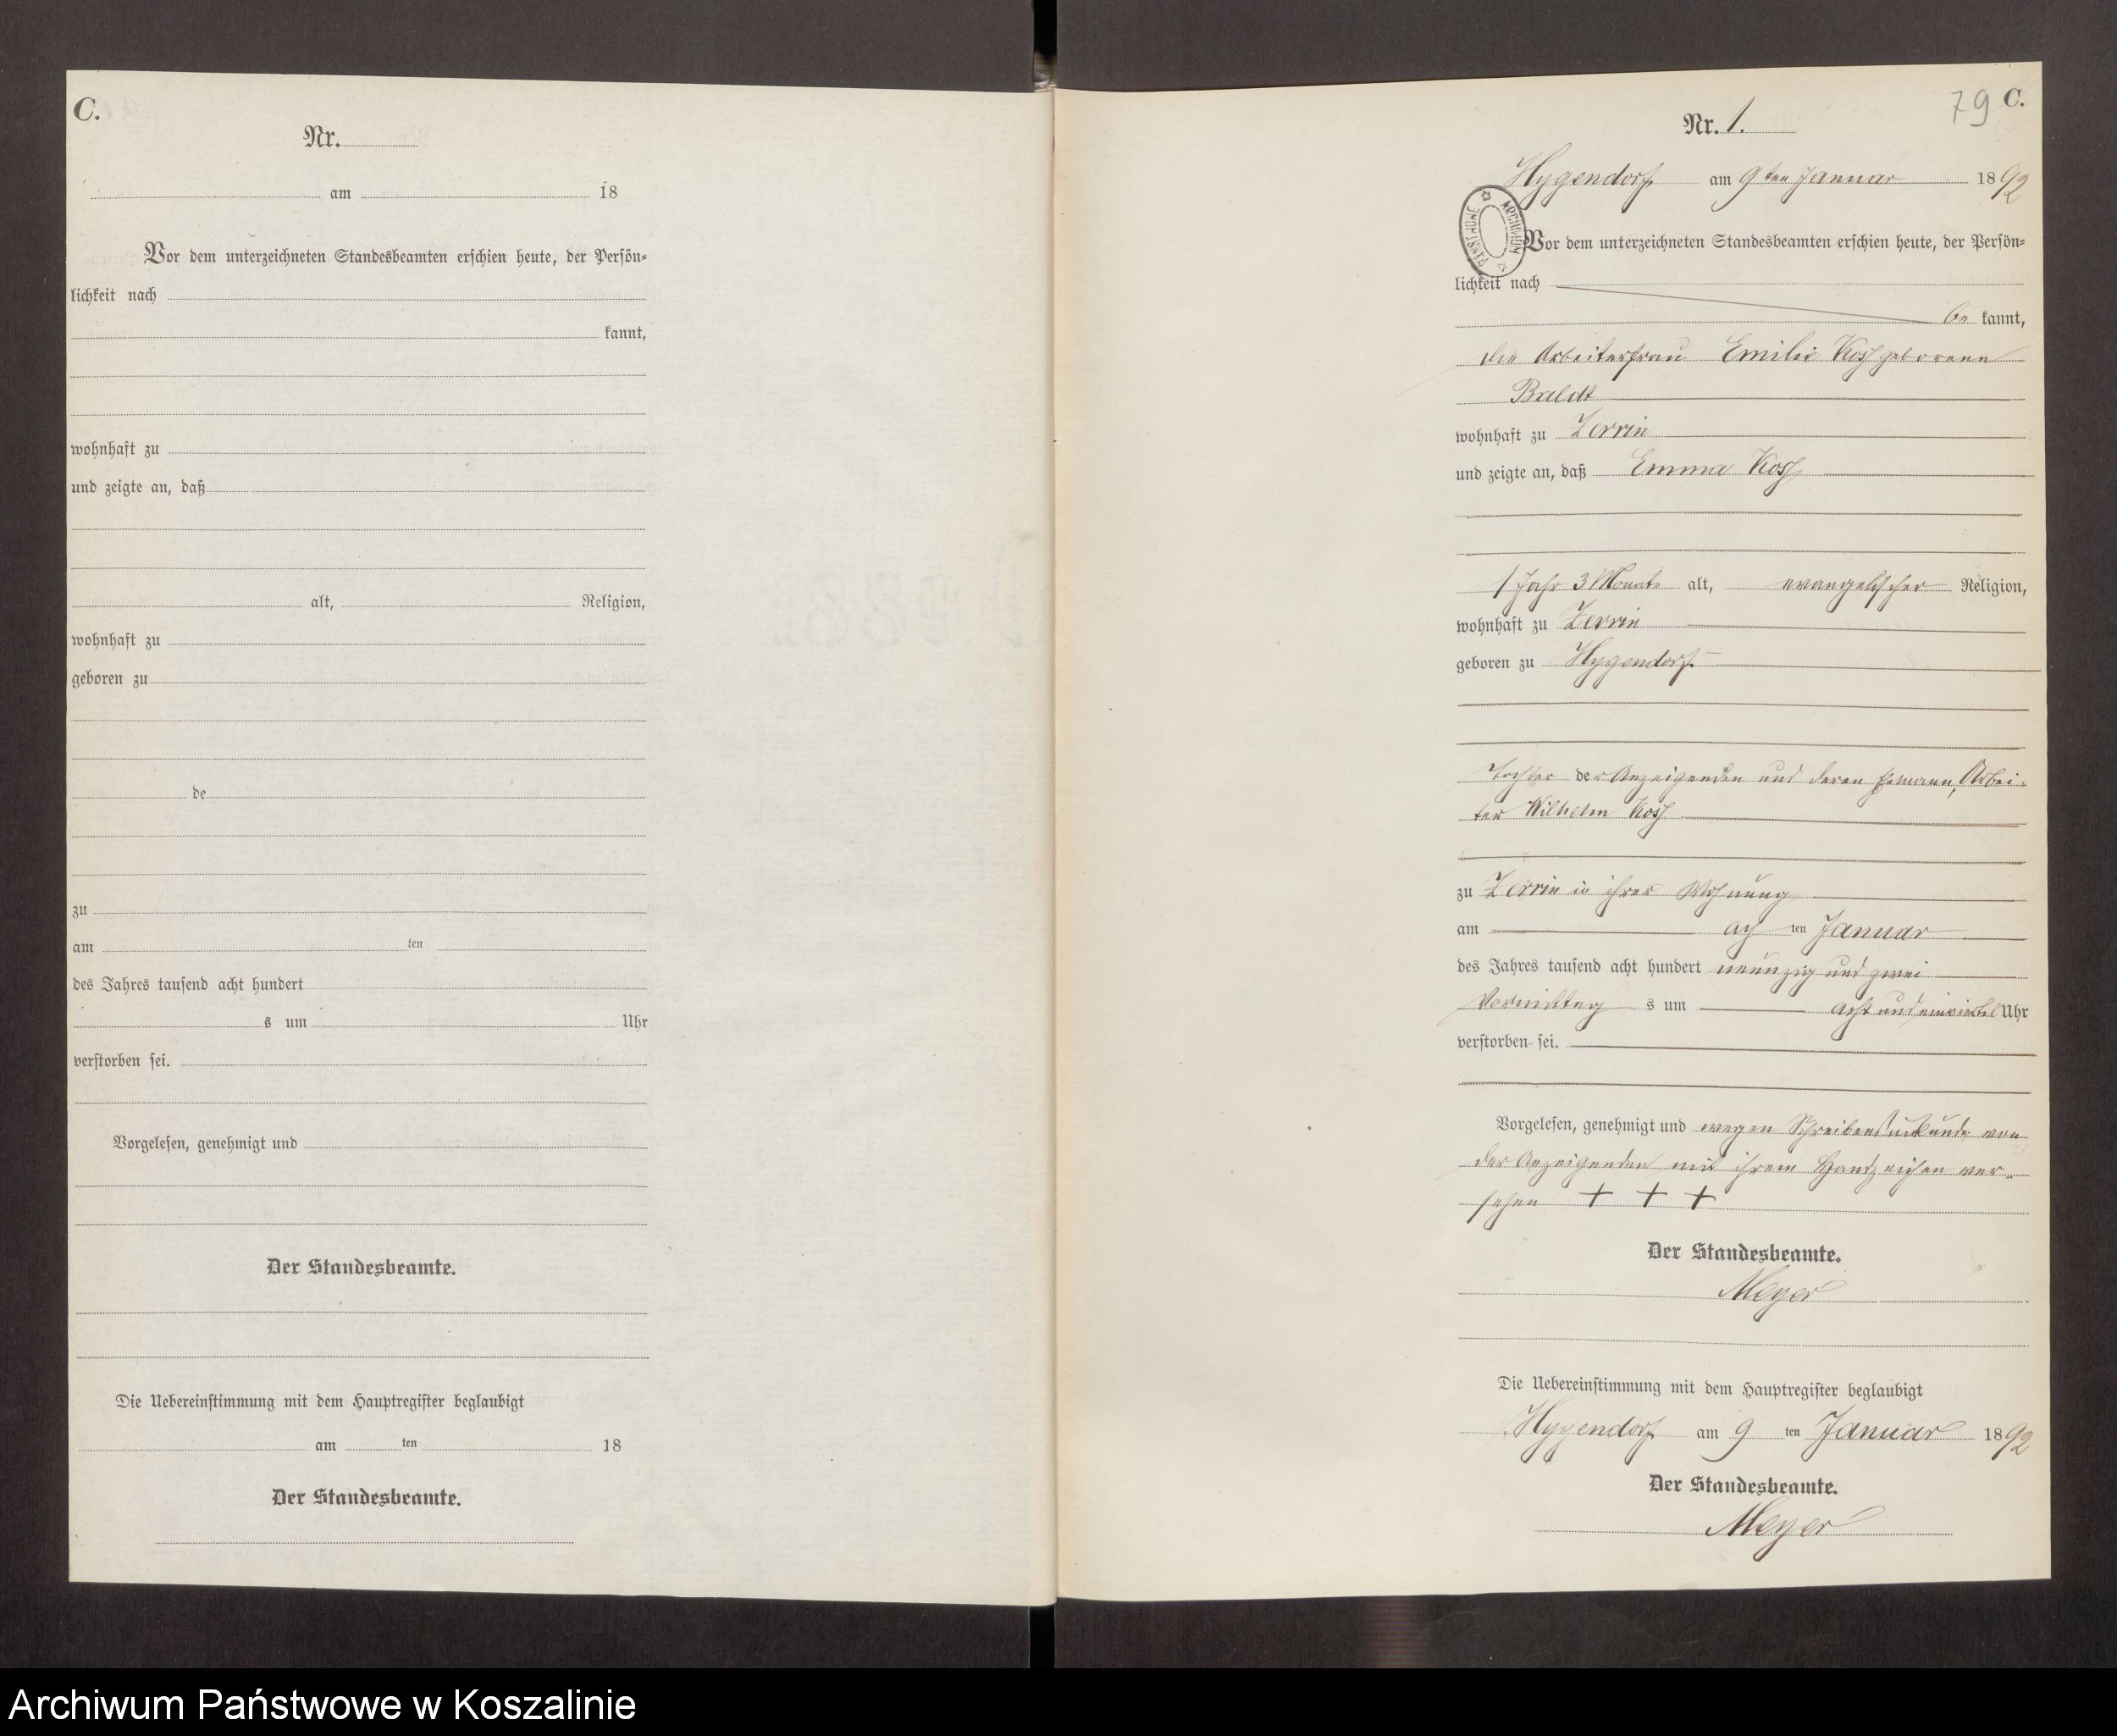 C.
Nr.
am 18
Vor dem unterzeichneten Standesbeamten erschien heute, der Persön=
lichkeit nach
kannt,
wohnhaft zu
und zeigte an, daß
alt, Religion,
wohnhaft zu
geboren zu
de
zu
am ten
des Jahres tausend acht hundert
s um Uhr
verstorben sei.
Vorgelesen, genehmigt und
Der Standesbeamte.
Die Uebereinstimmung mit dem Hauptregister beglaubigt
am ten 18
Der Standesbeamte.
79 C.
Nr. 1.
Hygendorf am 9ten Januar 1892
ARCHIWUM
Vor dem unterzeichneten Standesbeamten erschien heute, der Persön=
lichkeit nach
be kannt,
die Arbeiterfrau Emilie geborene
wohnhaft zu Zerrin
und zeigte an, daß Emma
1 Jahr 3 Monate alt, evangelischer Religion,
wohnhaft zu Zerrin
geboren zu Hygendorf
Tochter der Anzeigenden und deren Ehemann, Arbei-
ter Wilhelm
zu Zerrin in ihrer Wohnung
am ach ten Januar
des Jahres tausend acht hundert neunzig und zwei
Vormittag s um acht und einviertel Uhr
verstorben sei.
Vorgelesen, genehmigt und wegen Schreibensunkunde von
der Anzeigenden mit ihrem Handzeichen ver-
sehen + + +
Der Standesbeamte.
Meyer
Die Uebereinstimmung mit dem Hauptregister beglaubigt
Hygendorf am 9 ten Januar 1892
Der Standesbeamte.
Meyer
Archiwum Państwowe w Koszalinie